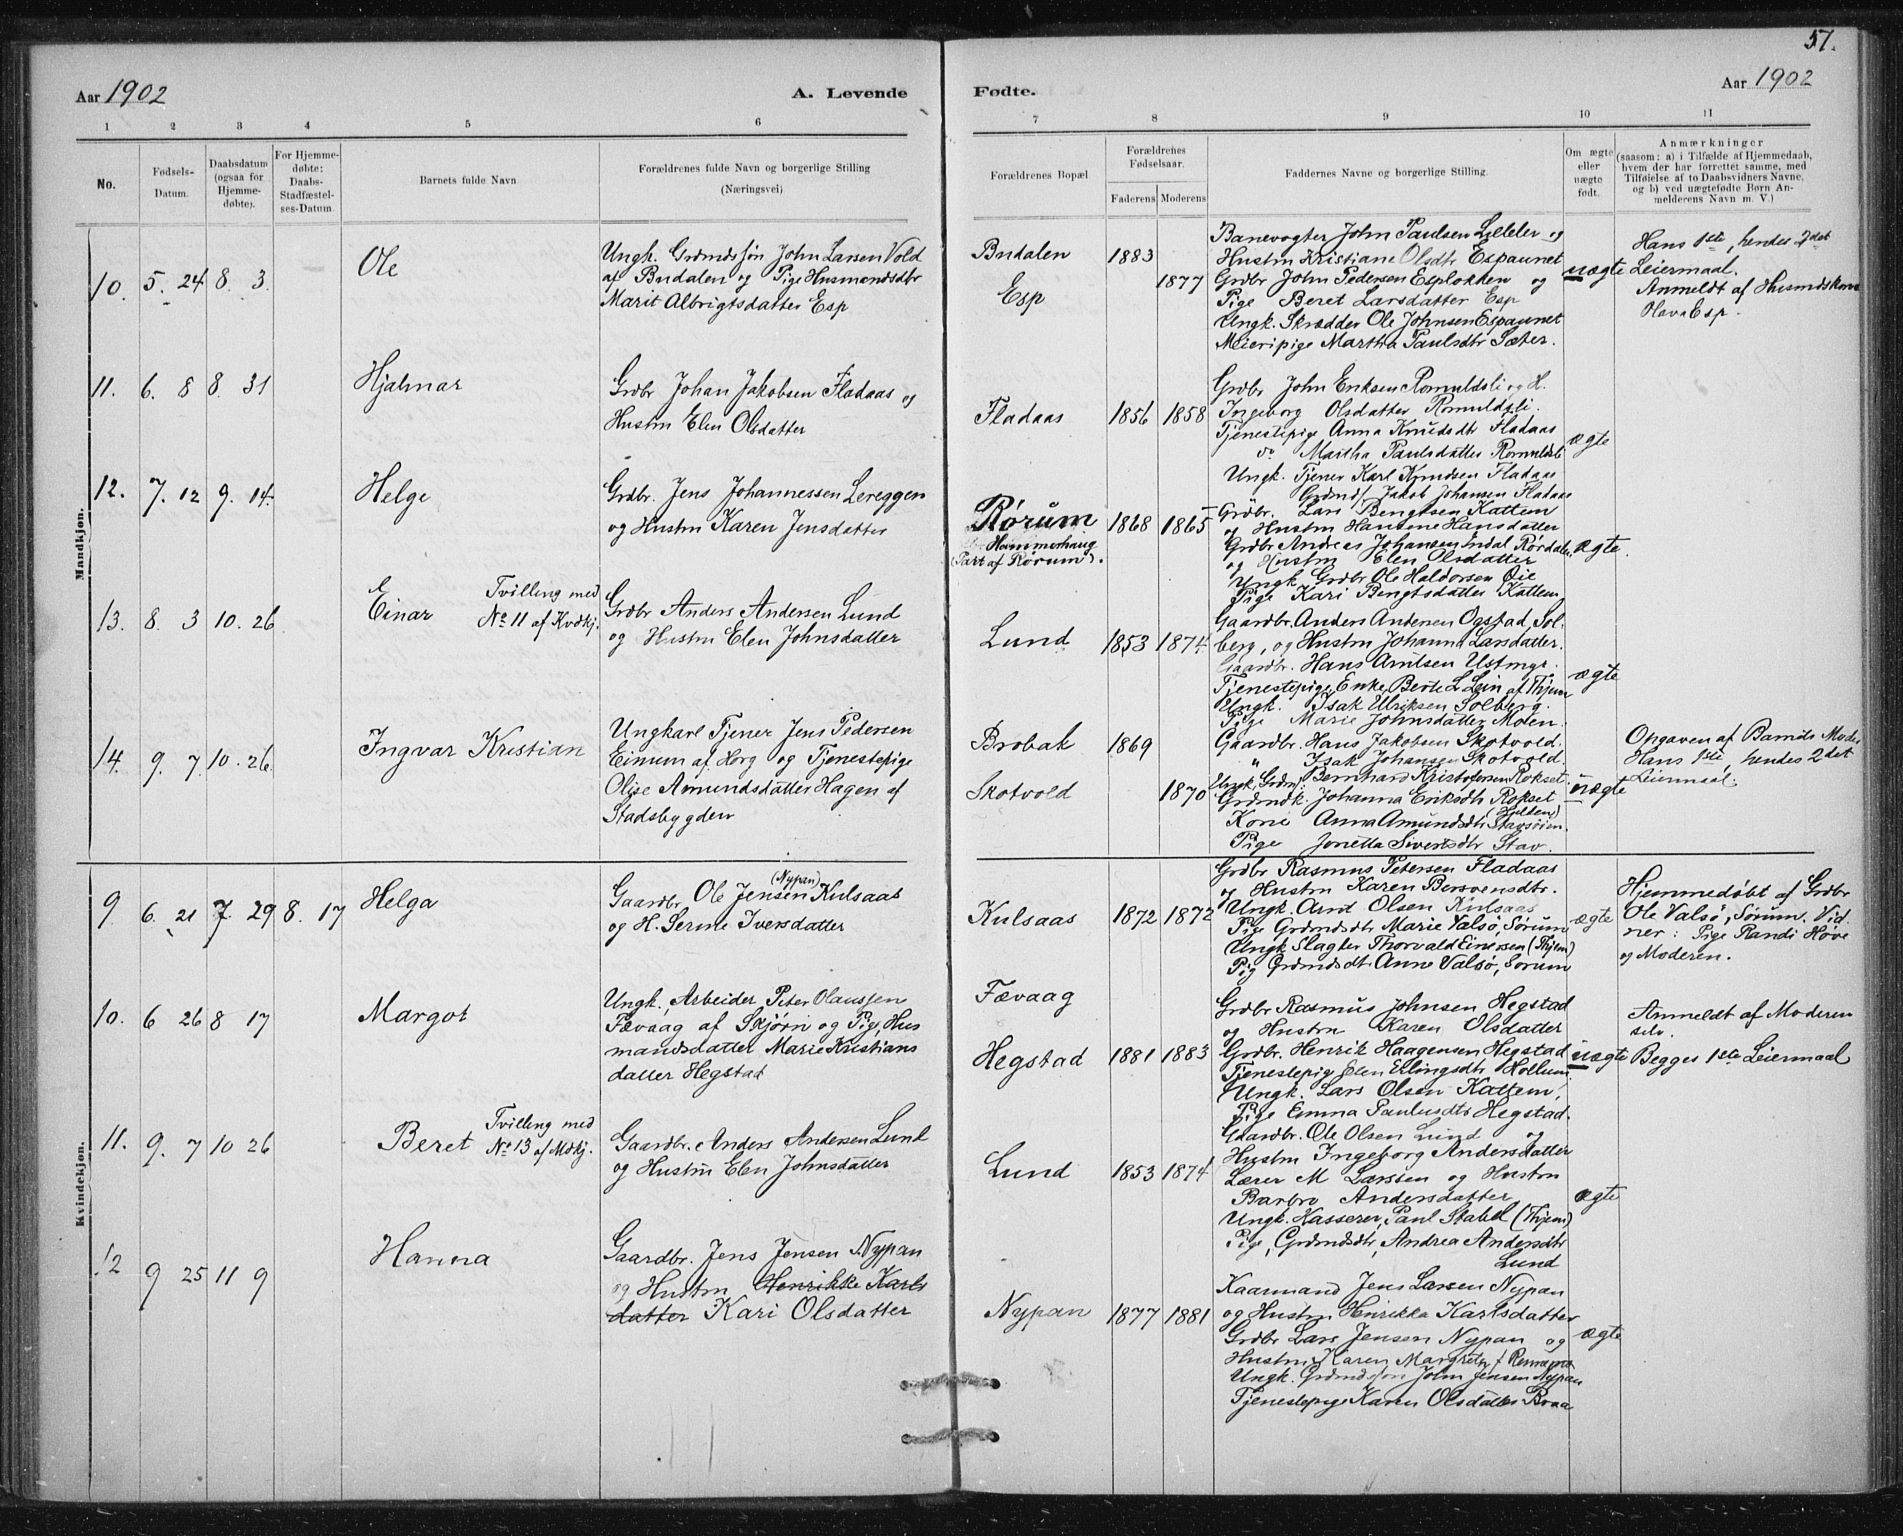 57.
Aar 1902
A. Levende
Fødte.
Aar 1902
1 2 3 4 5 6 7 8 9 10 11
No.
Fødsels-
Datum.
Daabsdatum
(ogsaa for
Hjemme-
døbte).
For Hjemme-
døbte:
Daabs-
Stadfæstel-
ses-Datum.
Barnets fulde Navn
Forældrenes fulde Navn og borgerlige Stilling
(Næringsvei)
Forældrenes Bopæl
Forældrenes
Fødselsaar.
Faderens Moderens
Faddernes Navne og borgerlige Stilling.
Om ægte
eller
uægte
født.
Anmærkninger
(saasom: a) i Tilfælde af Hjemmedaab,
hvem der har forrettet samme, med
Tilføielse af to Daabsvidners Navne,
og b) ved uægtefødte Børn An-
melderens Navn m. V.)
Mandkjøn.
10. 5. 24 8 3.
Ole
Ungk. Grdmdssøn John Larsen Vold
af Budalen og Pige Husmandsdtr
Marit Albrigtsdatter Esp
Budalen
Esp
1883
1877
Banevogter John Paulsen Leleler og
Hustru Kristiane Olsdtr Espaunet
Grdbr John Pedersen Espløkken og
Pige Beret Larsdatter Esp
Ungk. Skrædder Ole Johnsen Espaunet
Meieripige Martha Paulsdtr Sæter.
uægte
Hans 1ste, hendes 2det
Leiermaal.
Anmeldt af Husmdskone
Hava Esp.
11. 6. 8 8. 31
Hjalmar
Grdbr Johan Jakobsen Fladaas og
Hustru Elen Olsdatter
Fladaas
1856 1858
Grdbr John Eriksen Romuldsli og H.
Ingeborg Olsdatter Romuldsli.
Tjenestepige Anna Knudsdtr Fladaas
do Maitha Paulsdatter Romuldsli
Ungk. Tjener Karl Knudsen Fladaas
Grdmds. Jakob Johansen Fladaas
ægte
12. 7. 12 9. 14.
Helge
Grdbr. Jens Johannessen Lereggen
og Hustru Karen Jensdatter
Rørum
Hammerhaug
(Part af Rørum).
1868 1865
Grdbr. Lars Bengtsen Kattem
og Hustru Hansine Hansdatter
Grdbr Andreas Johansen Indal Rørdalen
og Hustru Elen Olsdatter
Ungk. Grdbr Ole Haldorsen Øie
Pige Kari Bengtsdatter Kattem
ægte.
13. 8. 3 10. 26
Einar
Tvilling med
No 11 af Kvdkj.
Grdbr Anders Andersen Lund
og Hustru Elen Johnsdatter
Lund
1853 1874
Gaardbr. Anders Andersen Ogstad, Sol-
berg, og Hustru Johanna Larsdatter.
Gaardbr. Hans Arntsen Ustmyr.
Tjenestepige Enke Berte L Lein af Thjem
Ungk. Isak Ulriksen Solberg.
Pige Marie Johnsdatter Moten.
ægte
14. 9. 7 10. 26.
Ingvar Kristian
Ungkarl Tjener Jens Pedersen
Einum af Horg og Tjenestepige
Olise Amundsdatter Hagen af
Stadsbygden
Brobak
Skotvold
1869
1870
Gaardbr. Hans Jakobsen Skotvold.
" Isak Johansen Skotvold.
Ungk. Grdm. Bernhard Kristofersen Rokset
Grdmdk. Johanna Eriksdtr Rokset
Kone Anna Amundsdtr Stavsøien.
(Hulten)
Pige Jonetta Sivertsdtr Stav.
uægte
Opgaven af Barnets Moder
Hans 1ste, hendes 2det
Leiermaal.
Kvindekjøn.
9 6. 21 7. 29 8. 17
Helga
Gaardbr Ole Jensen (Nypan) Kulsaas
og H. Serine Iversdatter
Kulsaas
1872 1872
Grdbr Rasmus Petersen Fladaas
og Hustru Karen Bersvensdtr.
Ungk. Arnt Olsen Kulsaas
Pige Grdmdsdtr Marie Valsø, Sørum
Ungk Slagter Thorvald Einersen (Thjem)
Pig Grdmdsdtr Anne Valsø, Sørum
ægte
Hjemmedøbt af Grdbr
Ole Valsø, Sørum. Vid-
ner: Pige Randi Høve
og Moderen.
10. 6 26 8 17
Margot
Ungk. Arbeider Peter Olaussen
Fævaag af Skjørn og Pige, Hus
mandsdatter Marie Kristians
datter Hegstad
Fævaag
Hegstad
1881 1883
Grdbr Rasmus Johnsen Hegstad
og Hustru Karen Olsdatter
Grdbr. Henrik Haagensen Hegstad
Tjenestepig Elen Erlingsdtr Hollum.
Ungk. Lars Olsen Kattem,
Pige Emma Paulusdtr Hegstad.
uægte
Anmeldt af Moderen
selv.
Begges 1ste Leiermaal
11. 9. 7 10 26
Beret
Tvilling med
No 13 af Mdkj.
Gaardbr. Anders Andersen Lund
og Hustru Elen Johnsdatter
Lund
1853 1874
Gaardbr. Ole Olsen Lund og
Hustru Ingeborg Andersdatter
Lærer M Larssen og Hustru
Barbro Andersdatter
Ungk. Kasserer, Paul Stabel (Thjem)
Pige, Grdmdsdtr, Andrea Andersdtr
Lund
ægte
12 9 25 11 9
Hanna
Gaardbr. Jens Jensen Nypan
og Hustru Henrikke Karls
datter Kari Olsdatter
Nypan
1877 1881
Kaarmand Jens Larsen Nypan
og Hustru Henrikka Karlsdatter
Grdbr Lars Jensen Nypan og
Hustru Karen Margrete
Ungk. Grdmdssøn John Jensen Nypan
Tjenestepige Karen Olsdatter Braa
ægte